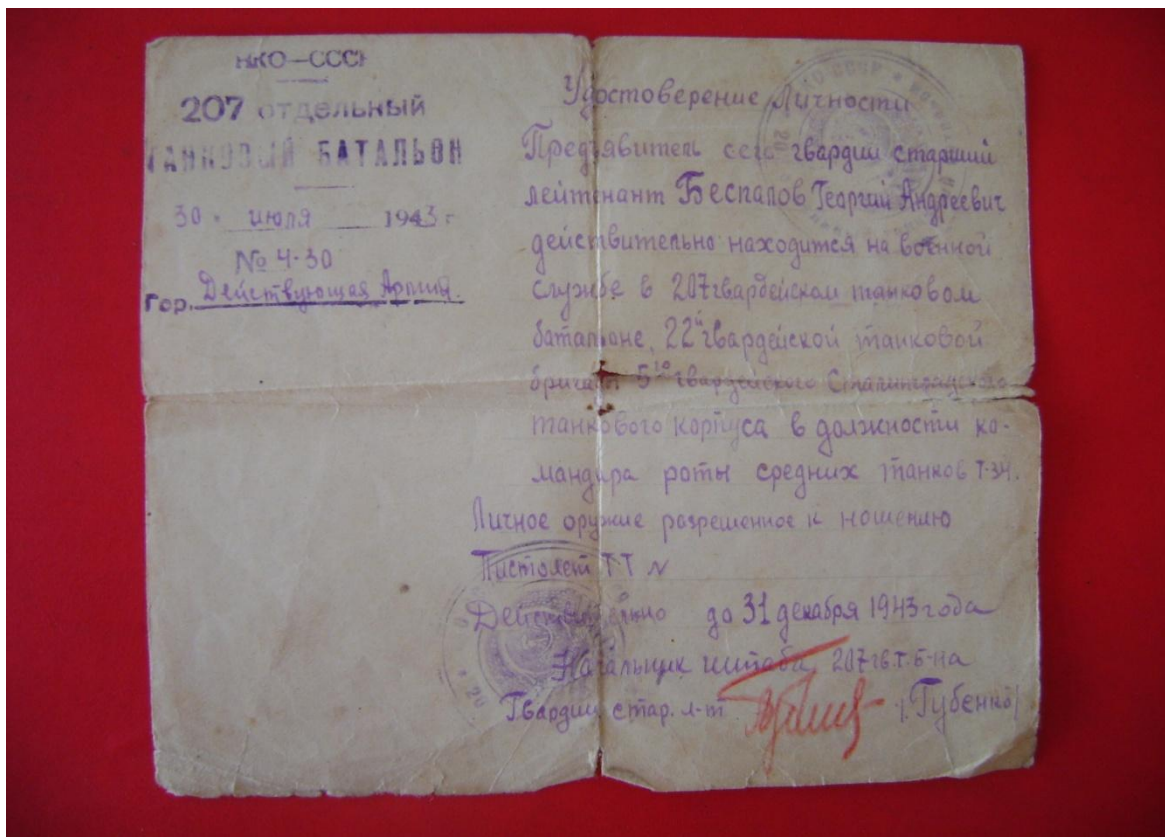 НКО—СССР
207 отдельный
ТАНКОВЫЙ БАТАЛЬОН
30 " июля 1943 г
№ 4-30
Гор. Действующая Армия.
Удостоверение Личности
Предъявитель сего гвардии старший
лейтенант Беспалов Георгий Андреевич
действительно находится на военной
службе в 207 гвардейском танковом
батальоне, 22й гвардейской танковой
бригады 5го гвардейского Сталинградского
танкового корпуса в должности ко-
мандира роты средних танков Т-34.
Личное оружие разрешенное к ношению
Пистолет ТТ №
Действительно до 31 декабря 1943 года
Начальник штаба 207 гв. т. б-на
Гвардии стар. л-т /Губенко/